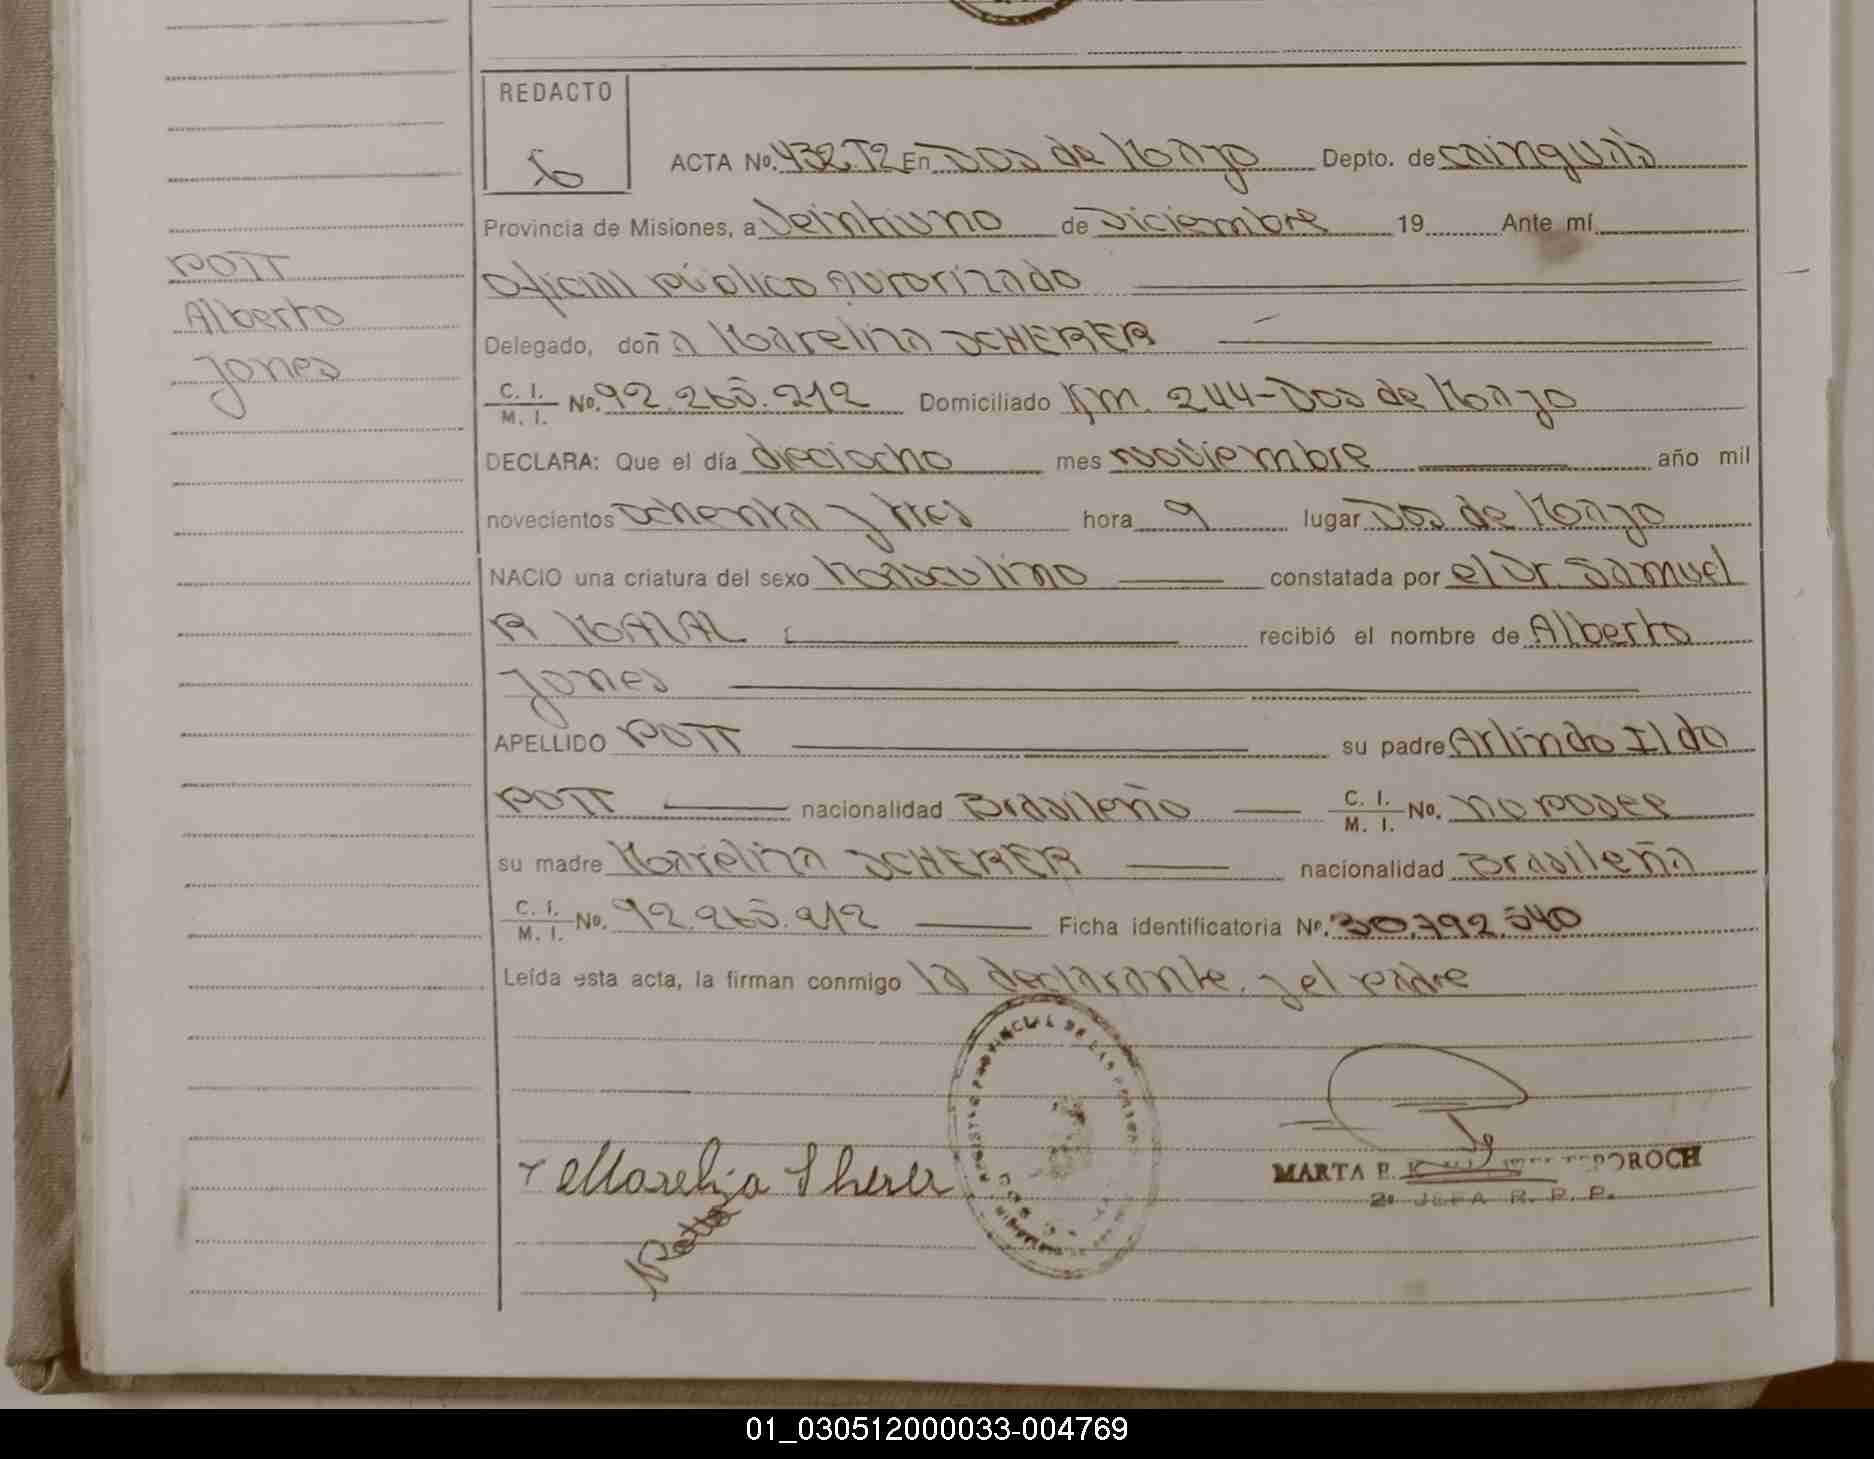 REDACTO
ACTA No. 432.T2 En Dos de Mayo Depto. de Cainguás
Provincia de Misiones, a Veintiuno de Diciembre 19 Ante mí
Oficial público Autorizado
POTT
Alberto
Jones
Delegado, doña Mareliza SCHERER
C. I. / M. I. No. 92.265.212 Domiciliado Km. 244-Dos de Mayo
DECLARA: Que el día dieciocho mes noviembre año mil
novecientos ochenta y tres hora 9 lugar Dos de Mayo
NACIO una criatura del sexo Masculino constatada por el Dr. Samuel
R recibió el nombre de Alberto
Jones
APELLIDO POTT su padre Arlindo Ildo
POTT nacionalidad Brasileño C. I. / M. I. No. no posee
su madre Mareliza SCHERER nacionalidad Brasileña
C. I. / M. I. No. 92.265.212 Ficha identificatoria No. 30.792.540
Leída esta acta, la firman conmigo la declarante y el padre
REGISTRO PROVINCIAL DE LAS PERSONAS
Mareliza Sherer
MARTA E. 
2º JEFA R. P. P.
01_030512000033-004769